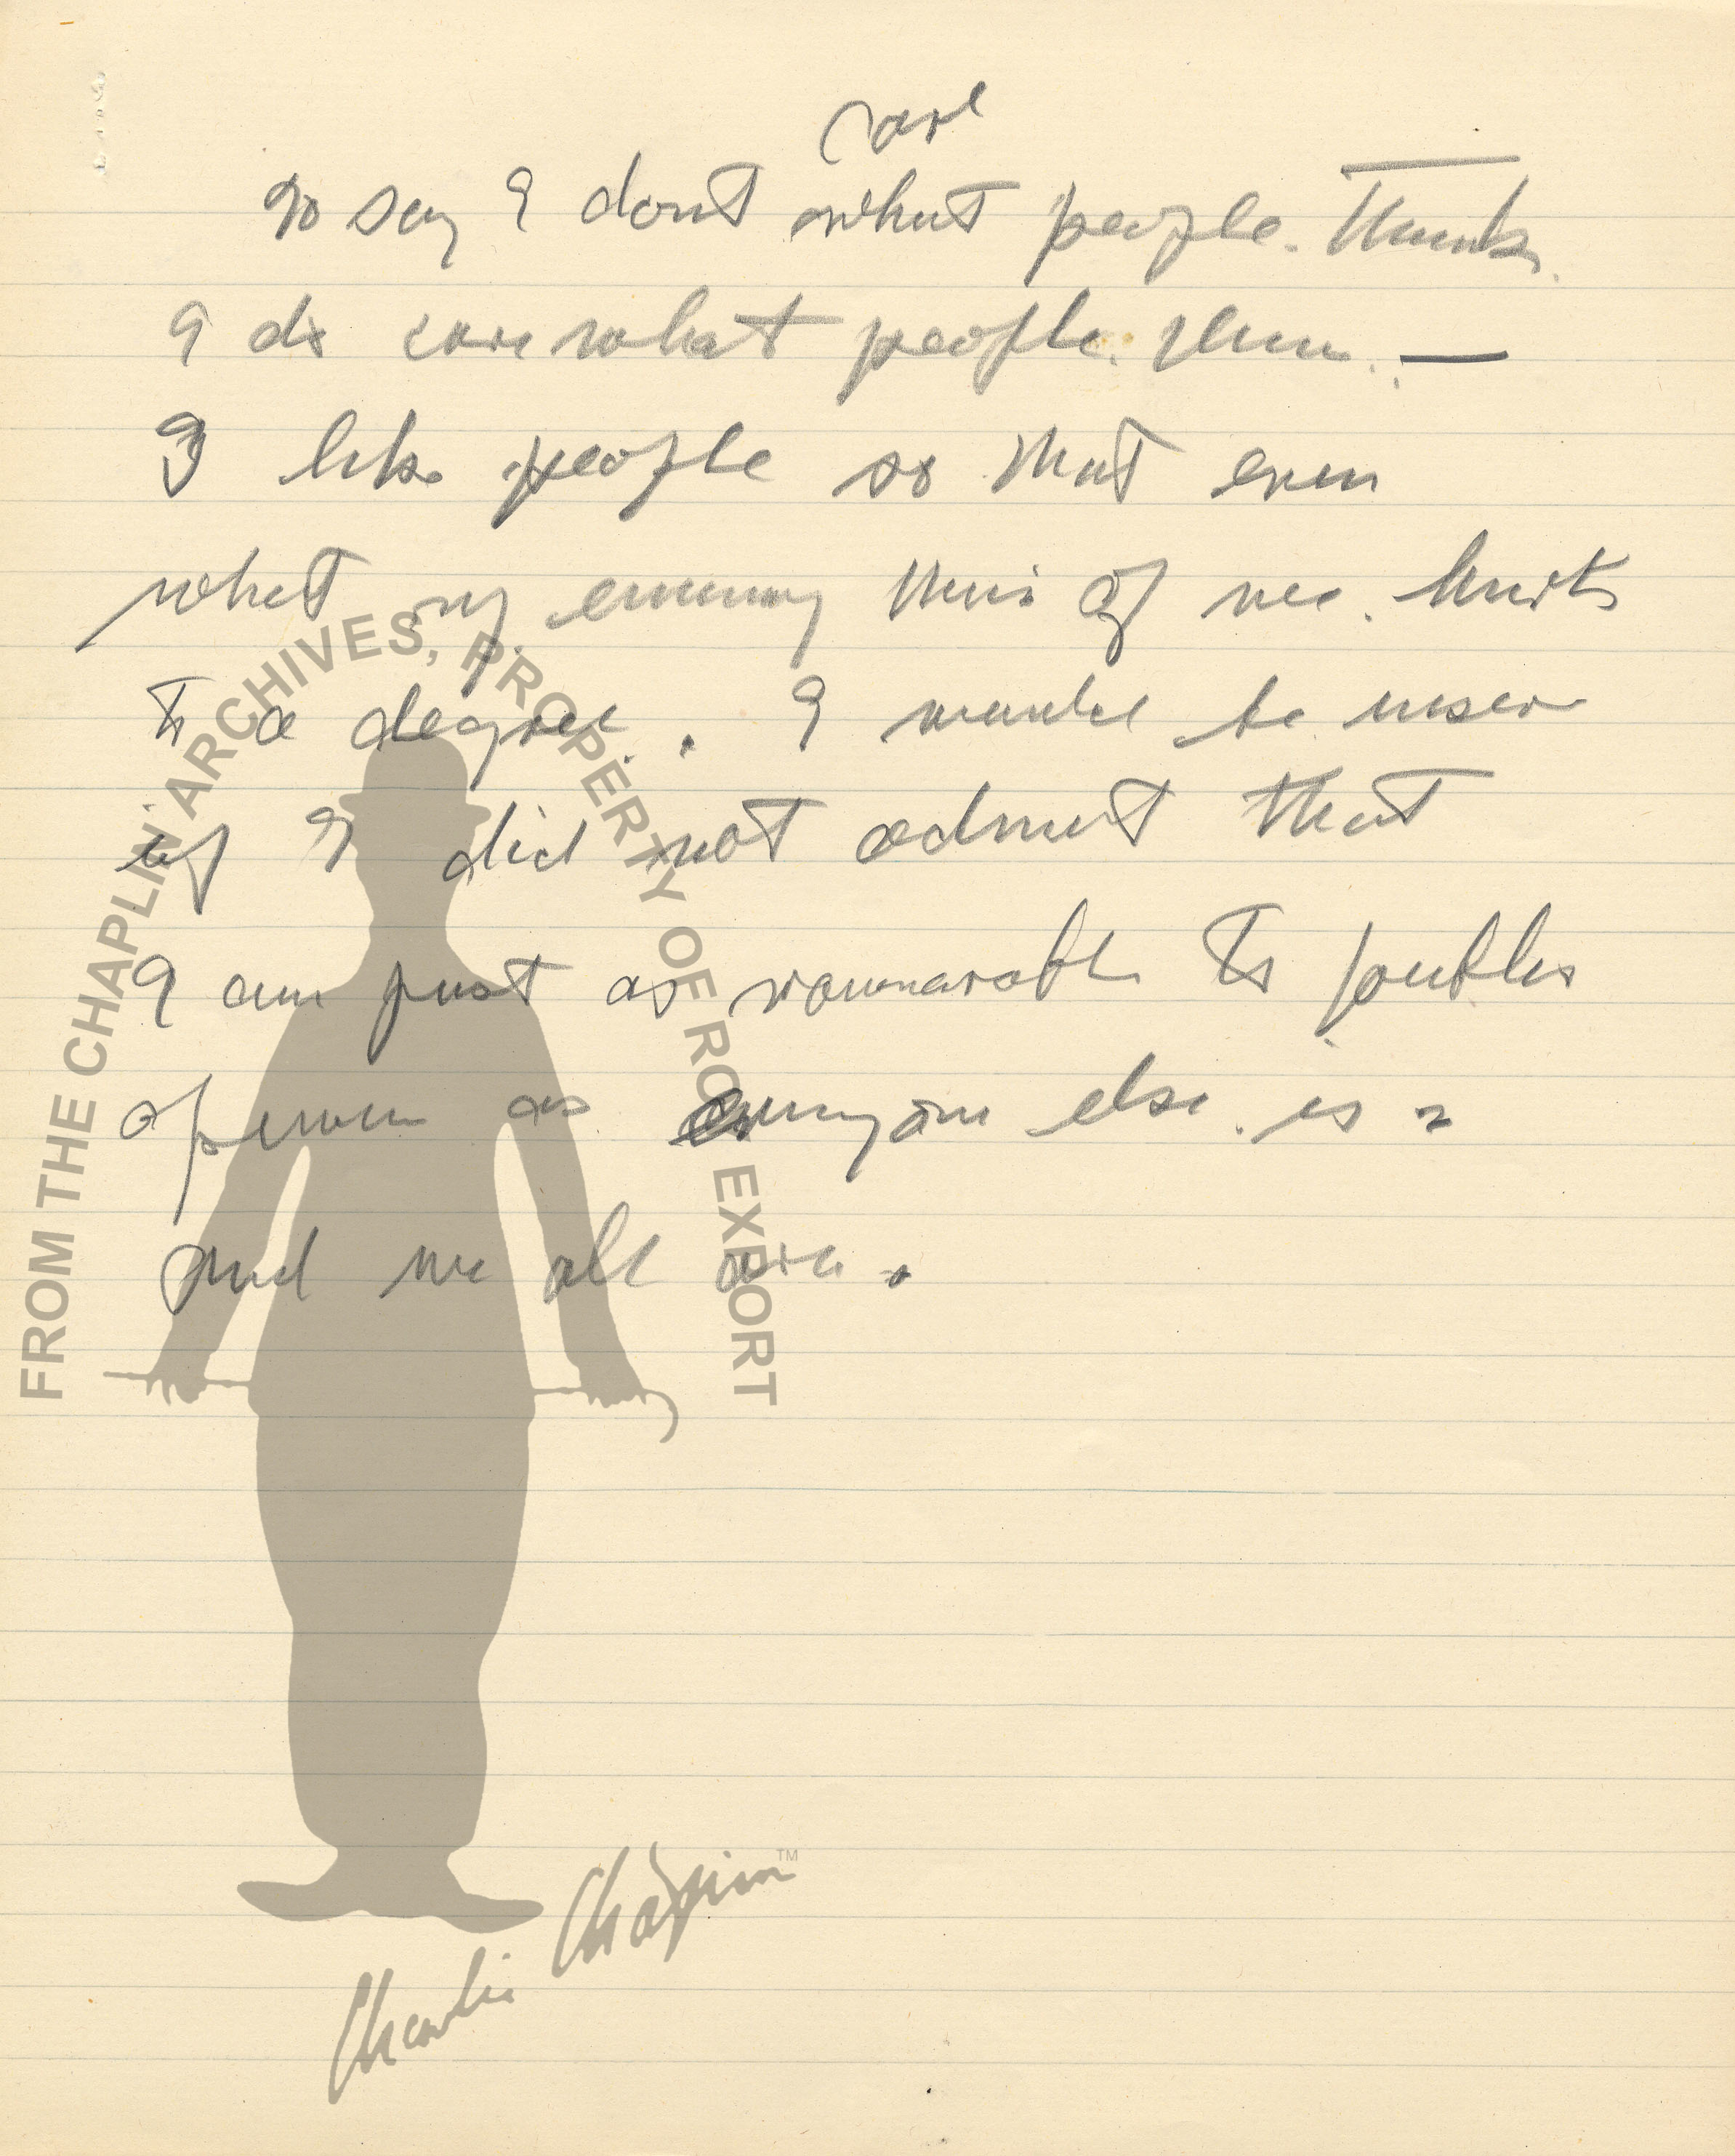 care
To say I dont what people. think.
I do care what people think. —
I like people so that even
what my enemy thinks of me. hurts
to a degree. I would be
if I did not admit that
I am just as to public
opinion as everyone else is
and we all are.
FROM THE CHAPLIN ARCHIVES, PROPERTY OF ROY EXPORT
Charlie Chaplin™